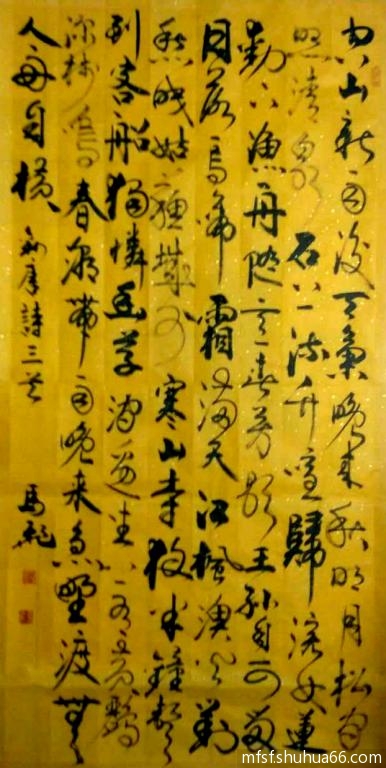 空山新雨後天氣晚来秋明月松間
照清泉石上流竹喧歸浣女蓮
動下漁舟隨意春芳歇王孫自可留
月落烏啼霜滿天江楓漁火對
愁眠姑蘇城外寒山寺夜半鐘聲
到客船獨憐幽草澗邊生上有黃鸝
深树鳴春潮帶雨晚来急野渡無
人舟自橫 录唐詩三首 馬
mfsfshuhua66.com